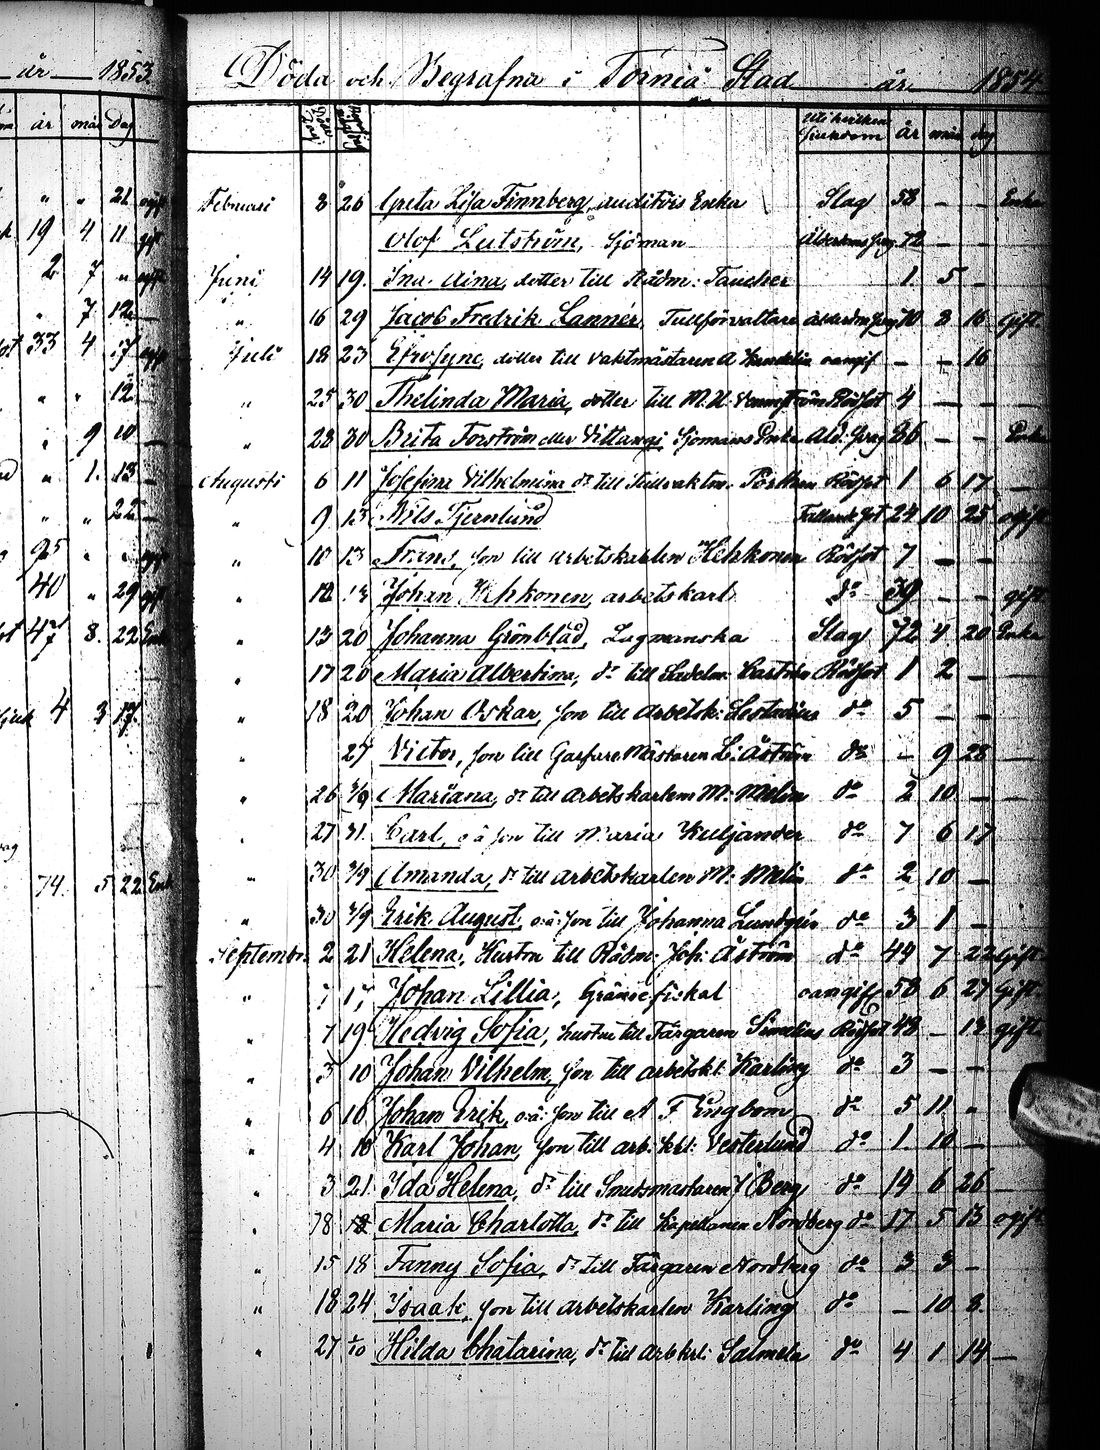 år 1853
år mån Dag
" " 21 ogift
19 4 11 gift
2 7 "
" 7 12 —
33 4 17
" " 12 —
" 9 10 —
" 1. 13 —
" " 22 —
95 " "
40 " 29 gift
47 8. 22 Enka
4 3 17.
74. 5 22 Enk
Döda och Begrafna i Torniå Stad år 1854
Uti hvilken Sjukdom år mån dag
Februari 8 26 Greta Lisa Finnberg, auditörs Enka Slag 58 — — Enka
Olof Lutström, Sjöman 72 — —
Juni 14 19. Ina Aina, dotter till Rådm: Taucher 1. 5 —
" 16 29 Jacob Fredrik Lannér, Tullförvaltare 70 8 16 gift
Juli 18 23 Efrosyne, dotter till Vaktmästaren A oangif — — 16
" 25 30 Thelinda Maria, dotter till M. Rödsot 4 — —
" 28 30 Brita Forström eller Vittangi Sjömans Enka Ald. 86 — — Enka
Augusti 6 11 Josefina Vilhelmina dr till Tullvaktm. Rödsot 1 6 17 —
" 9 13 Nils Tjernlund 24 10 25 ogift
" 10 13 Frans, son till arbetskarlen Hehkonen Rödsot 7 — —
" 12 13 Johan Hehkonen, arbetskarl do 39 — — gift
" 13 20 Johanna Grönblad, Lagmanska Slag 72 4 20 Enka
" 17 20 Maria Albertina, dr till Sadelm. Castrén Rödsot 1 2 —
" 18 20 Johan Oskar, son till Arbetsk: do 5 — —
" 27 Victor, son till Garfvare Mästaren L: Åström do — 9 28 —
" 26 3/9 Mariana, dr till arbetskarlen M: Melin do 2 10 — —
" 27 31. Carl, o ä son till Maria Kuljander do 7 6 17
" 30 3/9 Amanda, dr till arbetskarlen M: Melin do 2 10 —
" 30 3/9 Erik August, o:ä: son till Johanna Lundgrén do 3 1 —
Septembr. 2 21 Helena, Hustru till Rådm: Joh: Åström do 49 7 22 Gift
" 7 17 Johan Lillia, Gränsefiskal oangif 58 6 27 Gift.
" 7 19 Hedvig Sofia, hustru till Färgaren Simelius Rödsot 48 — 13 gift.
" 5 10 Johan Vilhelm, son till arbetskl. Karling do 3 — —
" 6 10 Johan Erik, o:ä: son till A F Engbom do 5 11 "
" 4 10 Karl Johan, son till arb. krl: Vesterlund do 1. 10 —
" 3 21. Ida Helena, dr till Smedsmästaren J Berg do 14 6 26
" 18 Maria Charlotta, dr till Kapellanen Nordberg do 17 5 13 ogift
" 15 18 Fanny Sofia, dr till Färgaren Nordberg do 3 3 —
" 18 24 Isaak, son till arbetskarlen Karling do — 10 8.
" 27 1/10 Hilda Chatarina, dr till arbkrl: Salmela do 4 1 14 —